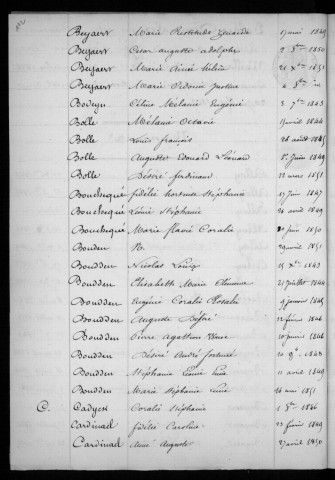 Beyaert Marie 17 mai 1849
Beyaert Cesar Auguste Adolphe 9 7bre 1850
Beyaert Marie Aimée 1851
Beyaert Marie
Bodeyn Célina Mélanie Eugénie 3 7bre 1843
Bolle Mélanie Octavie avril 1844
Bolle Louis françois 28 août 1845
Bolle Auguste Edouard Léonard 1er Juin 1849
Bolle Désiré ferdinand mars 1851
Bouchequé fidélie hortense Stéphanie 17 Juin 1847
Bouchequé Léonie Stéphanie 26 avril 1849
Bouchequé Marie flavie Coralie Juin 1850
Bouden N. 29 avril 1851
Boudden Nicolas Louis 15 Xbre 1843
Boudden Elisabeth Marie 21 juillet 1844
Boudden Eugénie Coralie Rosalie 9 janvier 1845
Boudden Auguste Désiré 12 février 1846
Boudden Pierre Agatton 20 janvier 1846
Boudden Désiré André fortuné 10 9bre 1848
Boudden Stéphanie Léonie 11 avril 1849
Boudden Marie Stéphanie Lucie 26 mai 1851
C. Cadyck Coralie Stéphanie 1 7bre 1846
Cardinael fidélie Caroline 23 février 1849
Cardinael Aimé Auguste 27 avril 1850